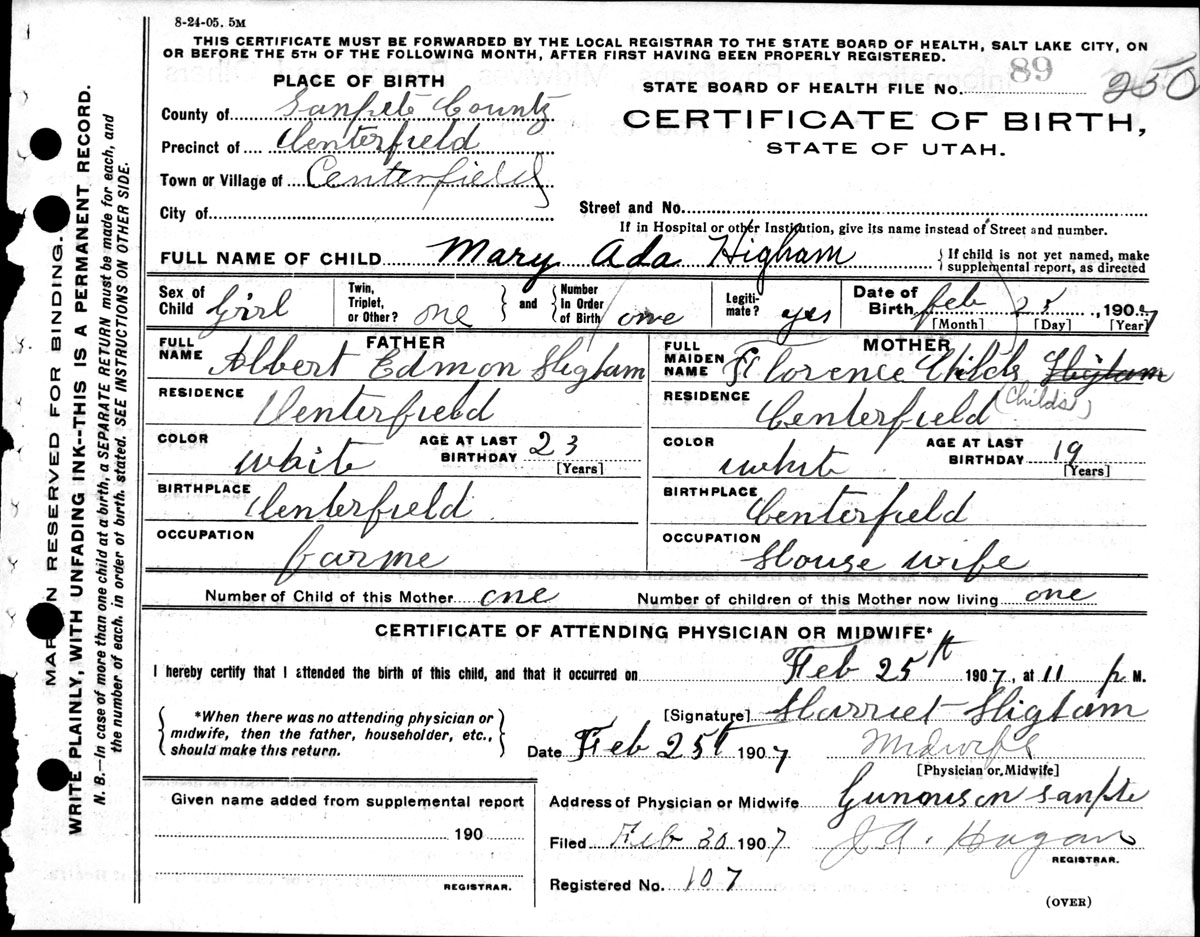 8-24-05. 5M
THIS CERTIFICATE MUST BE FORWARDED BY THE LOCAL REGISTRAR TO THE STATE BOARD OF HEALTH, SALT LAKE CITY, ON
OR BEFORE THE 5TH OF THE FOLLOWING MONTH, AFTER FIRST HAVING BEEN PROPERLY REGISTERED.
PLACE OF BIRTH
STATE BOARD OF HEALTH FILE No. 89 250
County of Sanpete County
CERTIFICATE OF BIRTH,
Precinct of Centerfield
STATE OF UTAH.
Town or Village of Centerfield
City of
Street and No.
If in Hospital or other Institution, give its name instead of Street and number.
FULL NAME OF CHILD Mary Ada Higham { If child is not yet named, make supplemental report, as directed
Sex of Child Girl Twin, Triplet, or Other? one } and { Number In Order of Birth one Legiti-mate? yes Date of Birth Feb 25, 1907
[Month] [Day] [Year]
FATHER MOTHER
FULL NAME Albert Edmon Higham FULL MAIDEN NAME Florence Childs Higham
(Childs)
RESIDENCE Centerfield RESIDENCE Centerfield
COLOR White AGE AT LAST BIRTHDAY 23 [Years] COLOR White AGE AT LAST BIRTHDAY 19 [Years]
BIRTHPLACE Centerfield BIRTHPLACE Centerfield
OCCUPATION farme OCCUPATION House wife
Number of Child of this Mother one Number of children of this Mother now living one
CERTIFICATE OF ATTENDING PHYSICIAN OR MIDWIFE*
I hereby certify that I attended the birth of this child, and that it occurred on Feb 25th 1907, at 11 p M.
{ *When there was no attending physician or midwife, then the father, householder, etc., should make this return. }
[Signature] Harriet Higham
Date Feb 25th 1907 Midwife
[Physician or Midwife]
Given name added from supplemental report
Address of Physician or Midwife Gunnison Sanpete
190
Filed Feb 20 1907 J. A. Hagan
REGISTRAR.
REGISTRAR.
Registered No. 107
(OVER)
MARGIN RESERVED FOR BINDING.
WRITE PLAINLY, WITH UNFADING INK--THIS IS A PERMANENT RECORD.
N. B.—In case of more than one child at a birth, a SEPARATE RETURN must be made for each, and
the number of each, in order of birth, stated. SEE INSTRUCTIONS ON OTHER SIDE.